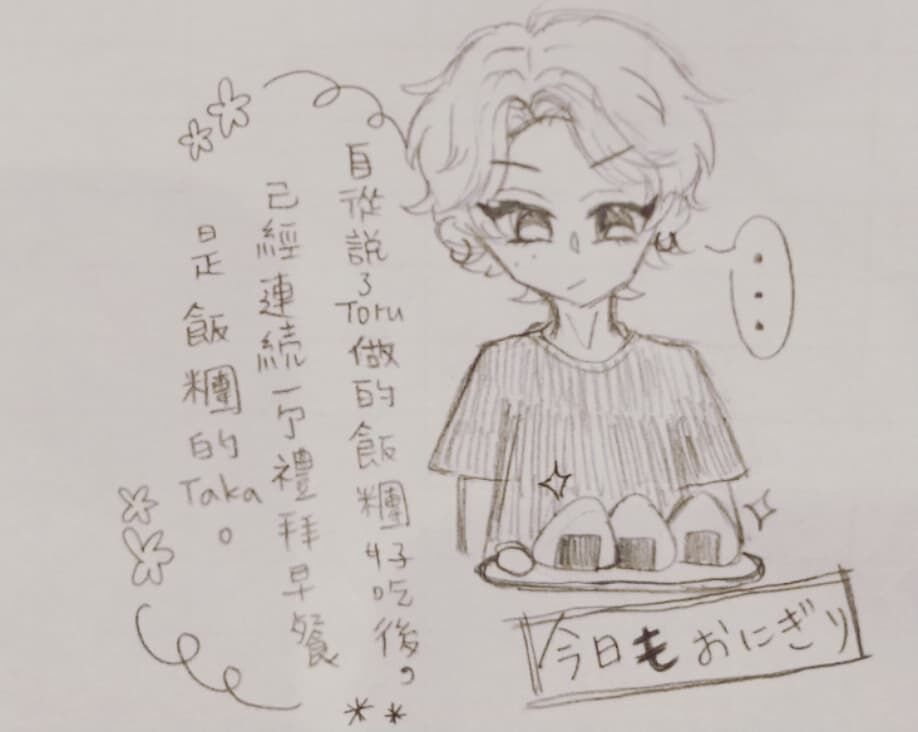 自從說了Toru做的飯糰好吃後，
已經連續一个禮拜早餐
是飯糰的Taka。
...
今日もおにぎり